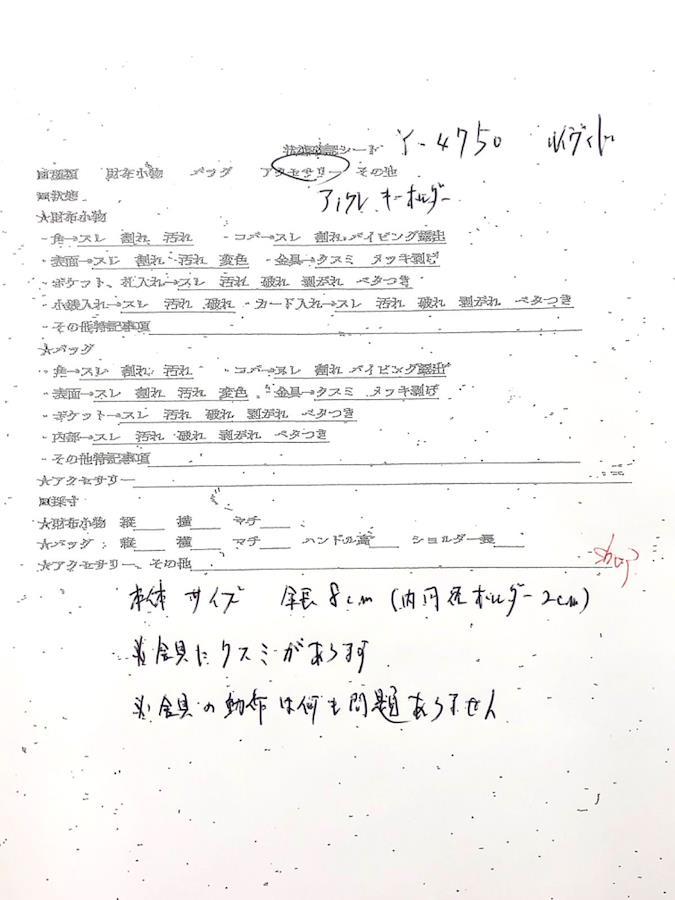 状態確認シート Y-4750 ルイヴィトン
□種類 財布小物 バッグ アクセサリー その他
□状態 アンクレ キーホルダー
★財布小物
・角→スレ 割れ 汚れ ・コバ→スレ 割れ パイピング露出
・表面→スレ 割れ 汚れ 変色 ・金具→クスミ メッキ剥げ
・ポケット、札入れ→スレ 汚れ 破れ 剥がれ ベタつき
・小銭入れ→スレ 汚れ 破れ ・カード入れ→スレ 汚れ 破れ 剥がれ ベタつき
・その他特記事項
★バッグ
・角→スレ 割れ 汚れ ・コバ→スレ 割れ パイピング露出
・表面→スレ 割れ 汚れ 変色 ・金具→クスミ メッキ剥げ
・ポケット→スレ 汚れ 破れ 剥がれ ベタつき
・内部→スレ 汚れ 破れ 剥がれ ベタつき
・その他特記事項
★アクセサリー
□採寸
★財布小物 縦 横 マチ
★バッグ: 縦 横 マチ ハンドル高 ショルダー長
★アクセサリー、その他
本体サイズ 全長8cm (内円径ホルダー2cm)
※金具にクスミがあります
※金具の動作は何も問題ありません